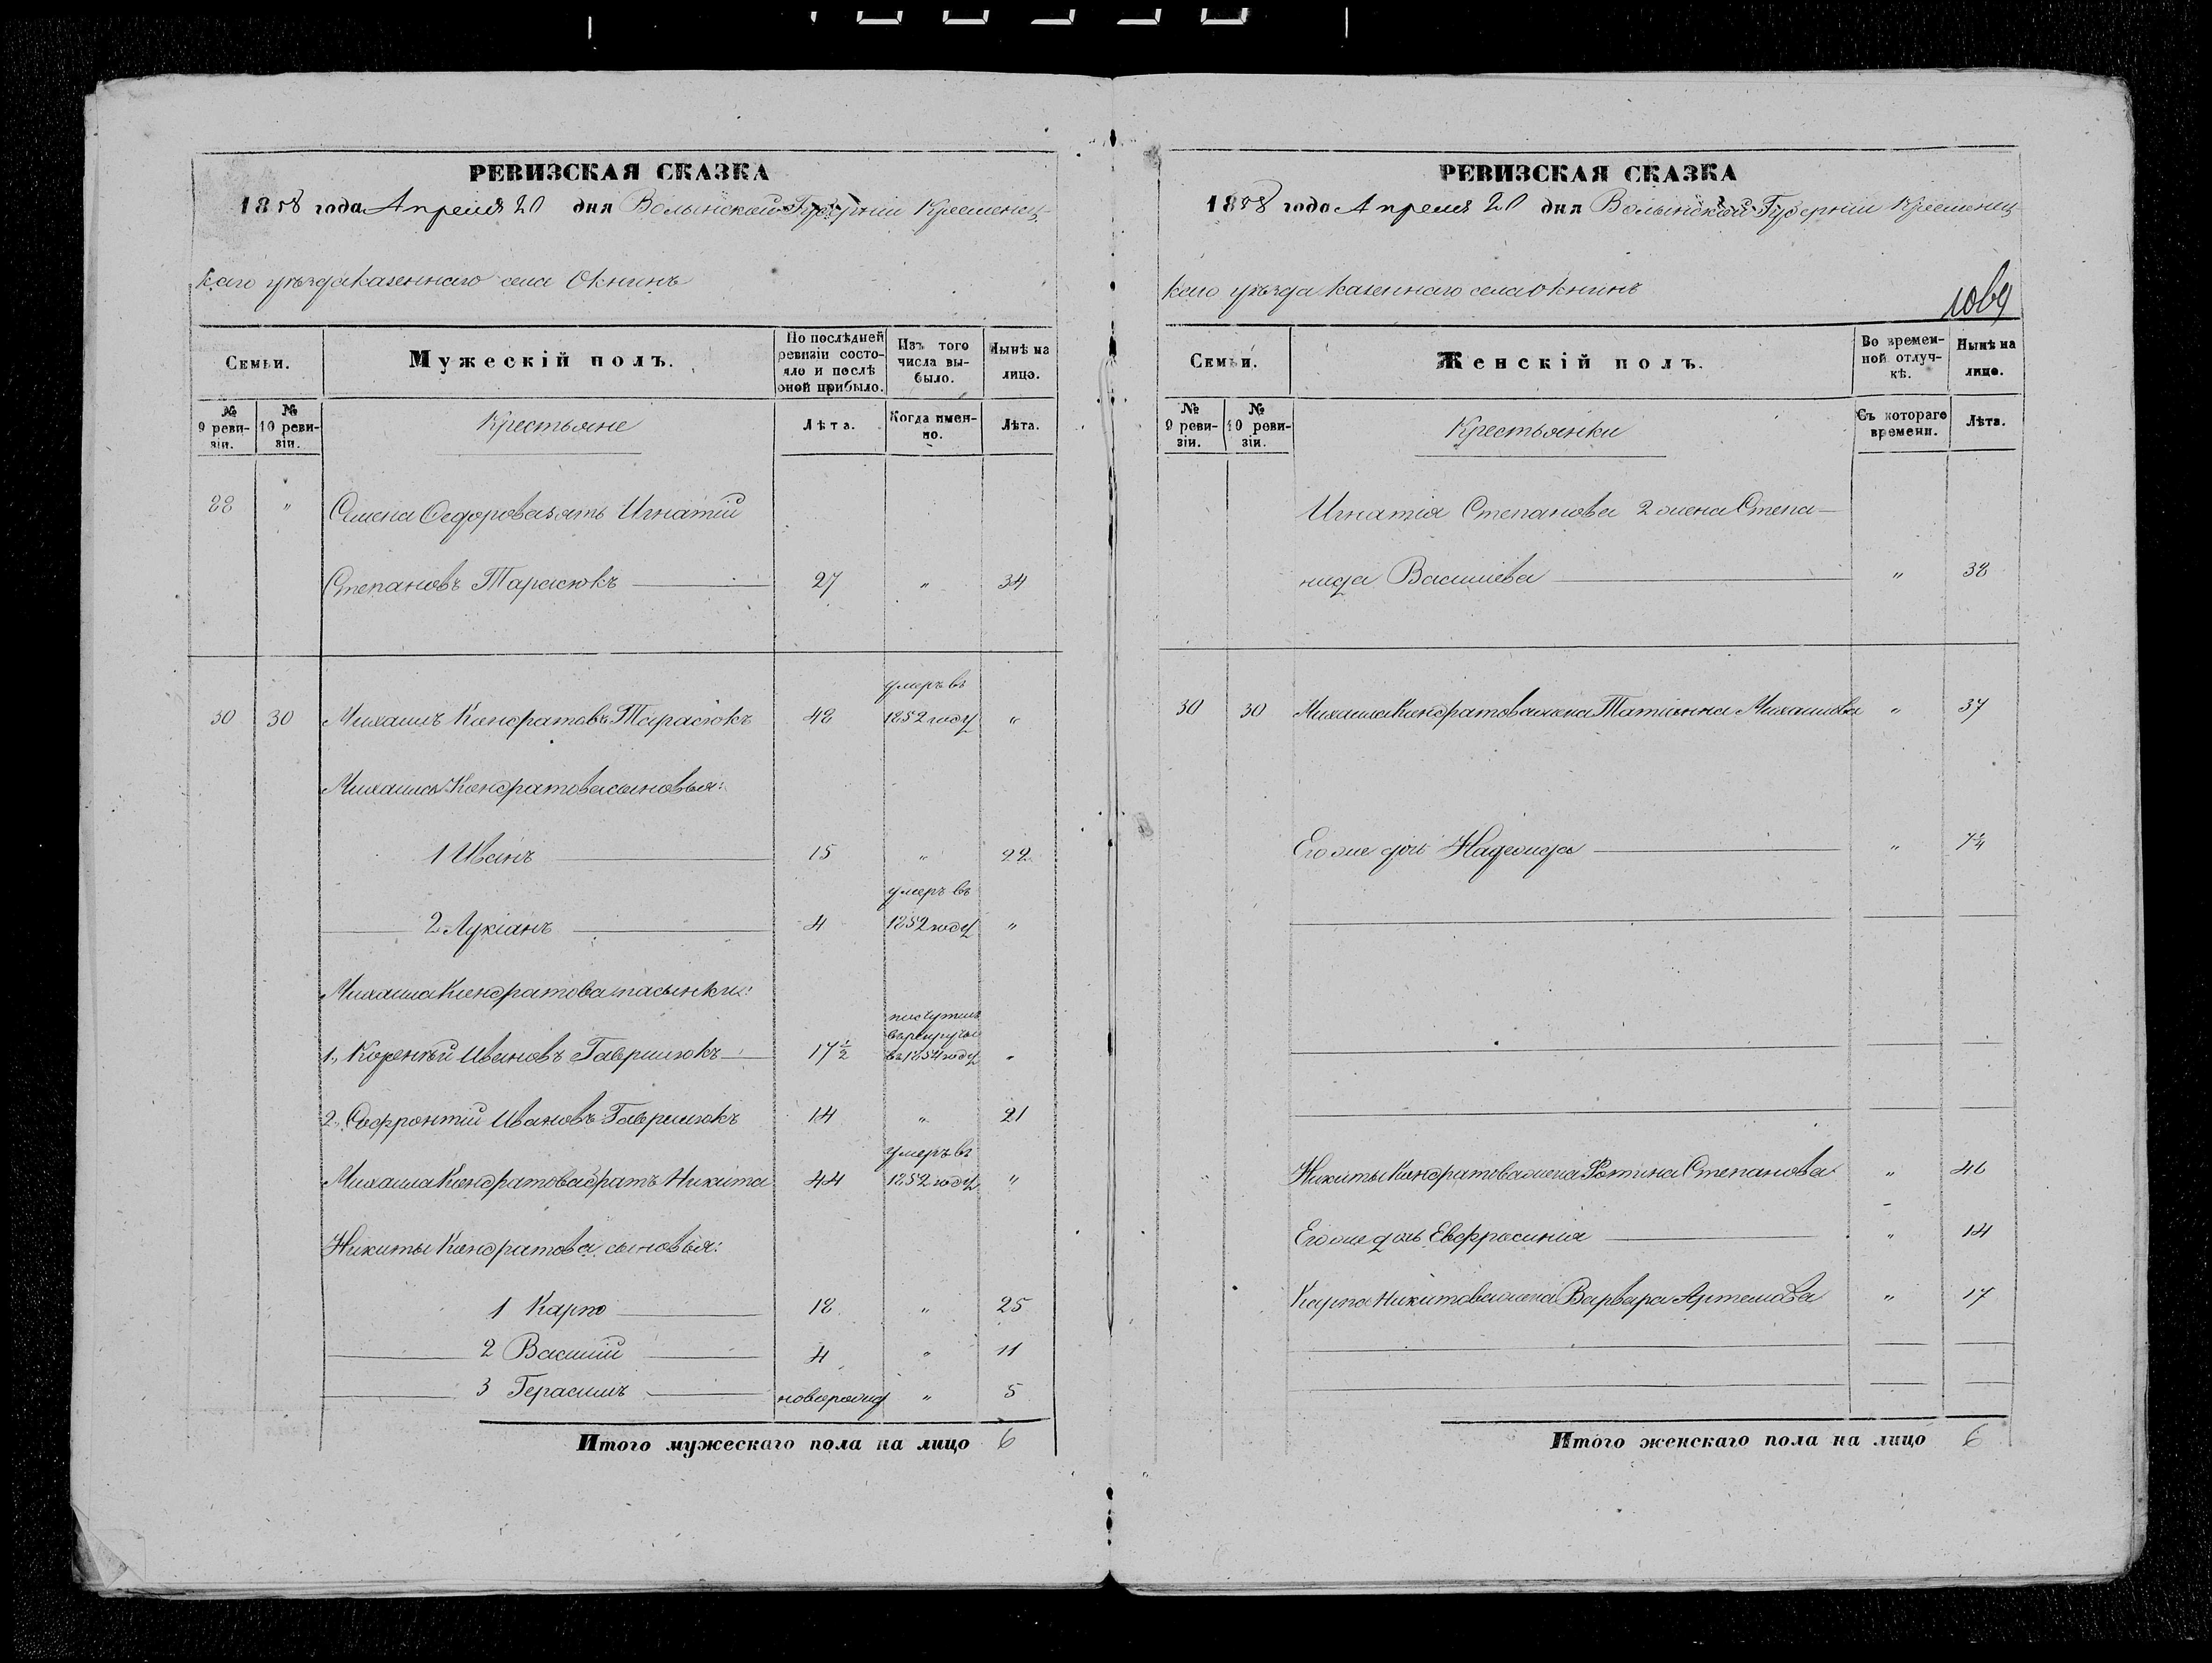 РЕВИЗСКАЯ СКАЗКА
1858 года Апреля 20 дня Волынской Губерніи Кременец-
каго уѣзда казеннаго села Окнинъ
Семьи.
Мужескій полъ.
По послѣдней ревизіи состояло и послѣ оной прибыло.
Изъ того числа выбыло.
Нынѣ на лицо.
№ 9 ревизіи.
№ 10 ревизіи.
Крестьяне
Лѣта.
Когда именно.
Лѣта.
28 " Семена Федорова зять Игнатій
Степановъ Тарасюкъ 27 " 34
умеръ въ
30 30 Михаилъ Кондратовъ Тарасюкъ 48 1852 году "
Михаила Кондратова сыновья:
1 Иванъ 15 " 22
умеръ въ
2 Лукіанъ 4 1852 году "
Михаила Кондратова пасынки:
поступилъ
въ рекруты
1, Корнѣй Ивановъ Гаврилюкъ 17½ въ 1854 году "
2, Софронтій Ивановъ Гаврилюкъ 14 " 21
умеръ въ
Михаила Кондратова братъ Никита 44 1852 году "
Никиты Кондратова сыновья:
1 Карпо 18 " 25
2 Василій 4 " 11
3 Герасимъ новорожд " 5
Итого мужескаго пола на лицо 6
РЕВИЗСКАЯ СКАЗКА
1858 года Апреля 20 дня Волынской Губерніи Кременец-
каго уѣзда казеннаго села Окнинъ
Семьи.
Женскій полъ.
Во временной отлучкѣ.
Нынѣ на лицо.
№ 9 ревизіи.
№ 10 ревизіи.
Крестьянки
Съ котораго времени.
Лѣта.
Игнатія Степанова 2 жена Степа-
нида Васильева " 38
30 30 Михаила Кондратова жена Татіанна Михайлова " 37
Его же дочь Надежда "
Никиты Кондратова жена Фотина Степанова " 46
Его же дочь Евфросинія " 14
Карпа Никитова жена Варвара Артемова " 17
Итого женскаго пола на лицо 6